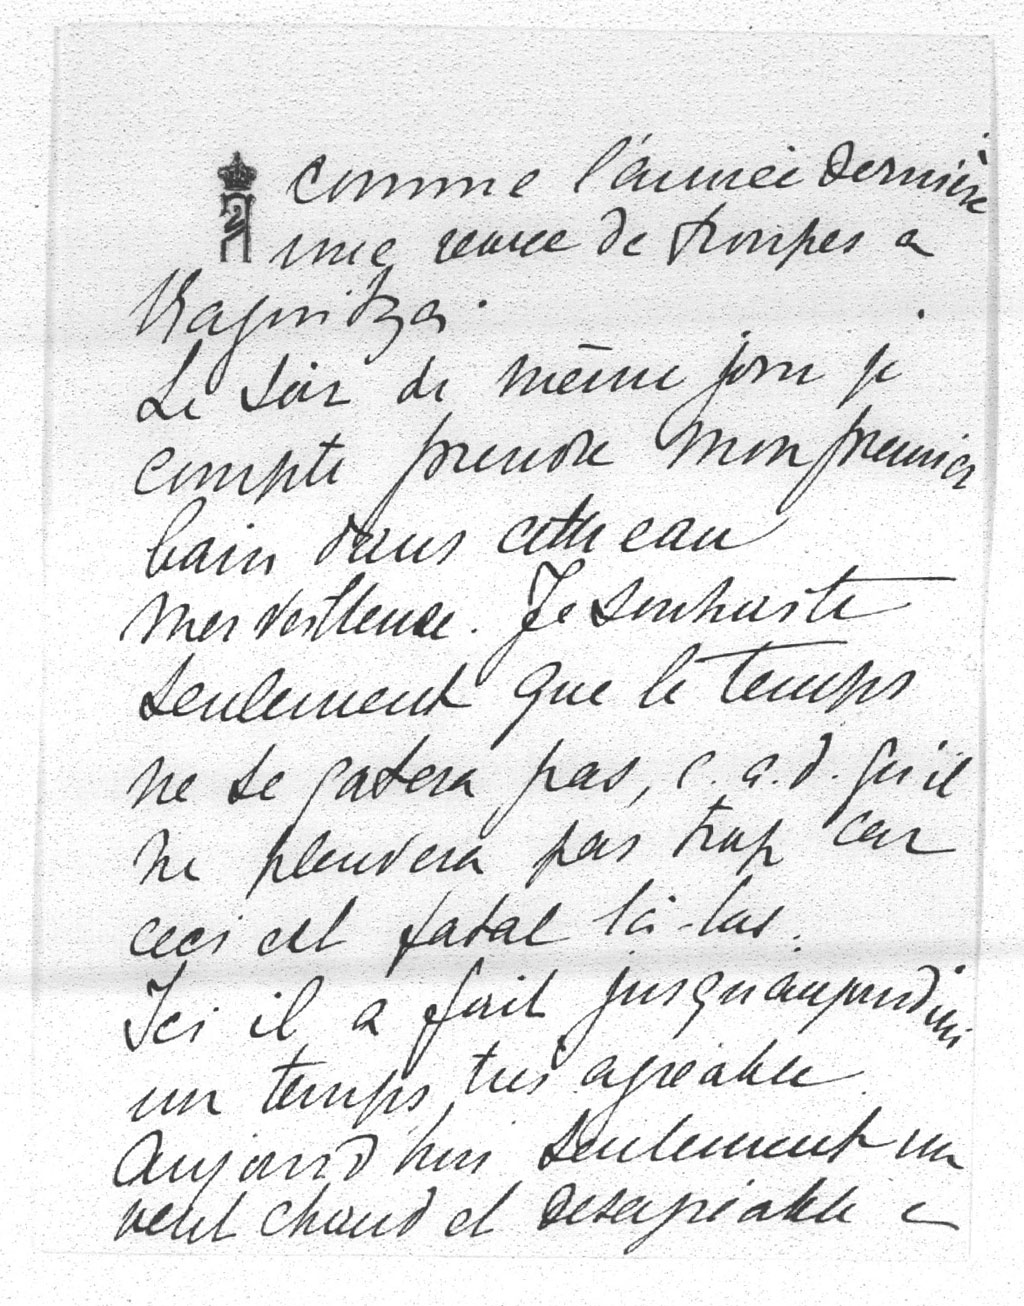 comme l'année dernière
une revue de troupes a
Le soir de même jour je
compte prendre mon premier
bain dans cette eau
merveilleuse. Je souhaite
seulement que le temps
ne se gatera pas, c. a. d. qu'il
ne pleuvera pas trop car
ceci est fatal là-bas.
Ici il a fait jusqu'aujourd'hui
un temps très agréable
Aujourd'hui seulement un
vent chaud et desagréable a